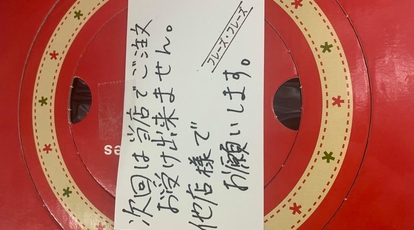 次回は当店でご注文
お受け出来ません。
他店様で
お願いします。
フレーズ・フレーズ
es